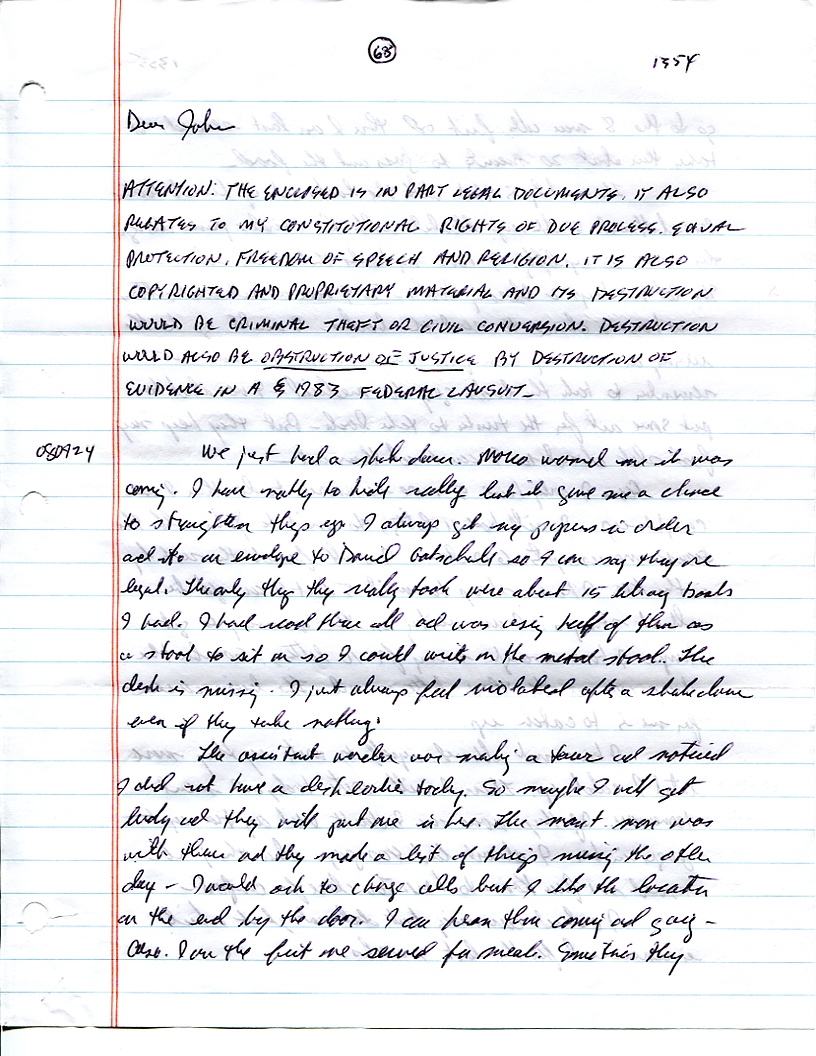 68
1354
Dear John
ATTENTION: THE ENCLOSED IS IN PART LEGAL DOCUMENTS. IT ALSO
RELATES TO MY CONSTITUTIONAL RIGHTS OF DUE PROCESS. EQUAL
PROTECTION, FREEDOM OF SPEECH AND RELIGION. IT IS ALSO
COPYRIGHTED AND PROPRIETARY MATERIAL AND ITS DESTRUCTION
WOULD BE CRIMINAL THEFT OR CIVIL CONVERSION. DESTRUCTION
WOULD ALSO BE OBSTRUCTION OF JUSTICE BY DESTRUCTION OF
EVIDENCE IN A § 1983 FEDERAL LAWSUIT-
080924 We just had a shake down. warned me it was
coming. I have nothing to hide really but it give me a chance
to straighten things up. I always get my papers in order
and into an envelope to David so I can say they are
legal. The only thing they really took were about 15 library books
I had. I had read them all and was using half of them as
a stool to sit on so I could write on the metal stool. The
desk is missing. I just always feel violated after a shakedown
even if they take nothing.
The assistant warden was making a tour and noticed
I did not have a desk earlier today. So maybe I will get
lucky and they will put me in one. The maint. man was
with them and they made a list of things missing the other
day - I would ask to change cells but I like the location
on the end by the door. I can hear them coming and going -
Also. I am the first one served for meals. Sometimes they